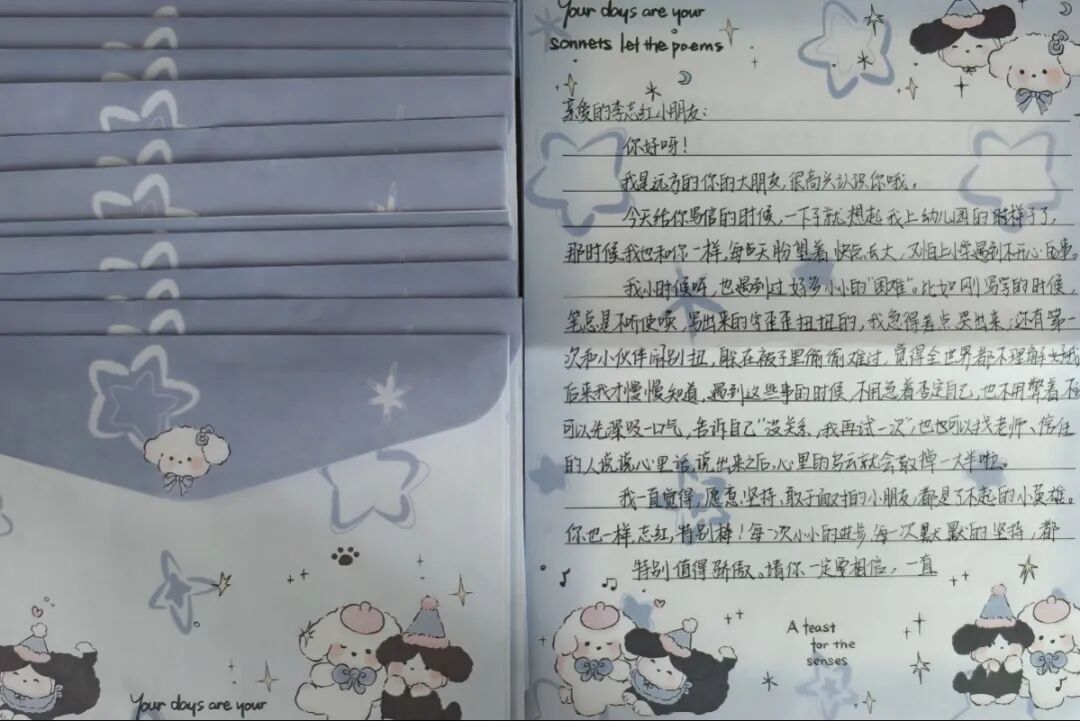 Your days are your
Your days are your
sonnets let the poems
亲爱的李志红小朋友:
你好呀!
我是远方的你的大朋友,很高兴认识你哦。
今天给你写信的时候,一下子就想起我上幼儿园的时样子了,
那时候我也和你一样,每天盼望着快点长大,又怕上小学遇到不开心的事。
我小时候呀,也遇到过好多小小的“困难”。比如刚写字的时候,
笔总是不听使唤,写出来的字歪歪扭扭的,我急得差点哭出来;还有第一
次和小伙伴闹别扭,躲在被子里偷偷难过,觉得全世界都不理解
后来我才慢慢知道,遇到这些事的时候,不用急着否定自己,也不用憋着
可以先深吸一口气,告诉自己“没关系,我再试一次”,也可以找老师、信任
的人说说心里话,说出来之后,心里的乌云就会散掉一大半啦。
我一直觉得,愿意坚持、敢于面对的小朋友,都是了不起的小英雄。
你也一样,志红,特别棒!每一次小小的进步,每一次默默的坚持,都
特别值得骄傲。请你一定要相信,一直
A feast
for the
senses